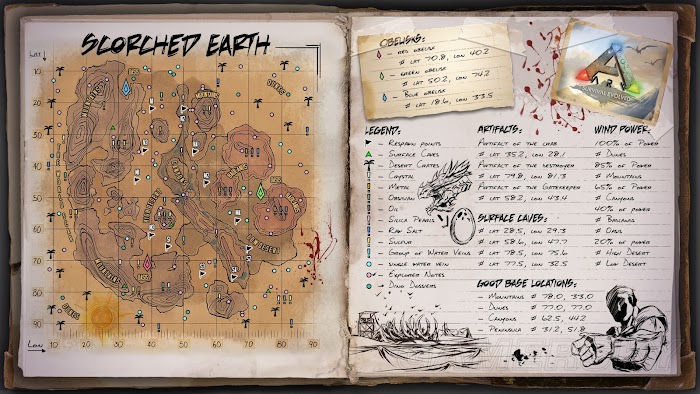 SCORCHED EARTH
LAT
10
20
30
40
50
60
70
80
90
DUNES
DUNES
LON
10
20
30
40
50
60
70
80
90
OBELISKS:
- RED OBELISK
# LAT 70.8, LON 40.2
- GREEN OBELISK
# LAT 50.2, LON 74.2
- BLUE OBELISK
# LAT 18.6, LON 33.5
ARK
SURVIVAL EVOLVED
LEGEND:
- RESPAWN POINTS
- SURFACE CAVES
- DESERT CRATES
- CRYSTAL
- METAL
- OBSIDIAN
- OIL
- SILICA PEARLS
- RAW SALT
- SULFUR
- GROUP OF WATER VEINS
- SINGLE WATER VEIN
- EXPLORER NOTES
- DINO DOSSIERS
ARTIFACTS:
ARTIFACT OF THE CRAG
# LAT 35.2, LON 28.1
ARTIFACT OF THE DESTROYER
# LAT 79.8, LON 81.3
ARTIFACT OF THE GATEKEEPER
# LAT 58.2, LON 43.4
SURFACE CAVES:
# LAT 28.5, LON 29.3
# LAT 58.6, LON 47.7
# LAT 78.5, LON 75.6
# LAT 77.5, LON 32.5
GOOD BASE LOCATIONS:
- MOUNTAINS # 78.0, 33.0
- DUNES # 77.0, 77.0
- CANYONS # 62.5, 44.2
- PENINSULA # 31.2, 51.8
WIND POWER:
100% OF POWER
# DUNES
85% OF POWER
# MOUNTAINS
65% OF POWER
# CANYONS
40% OF POWER
# BADLANDS
# OASIS
20% OF POWER
# HIGH DESERT
# LOW DESERT